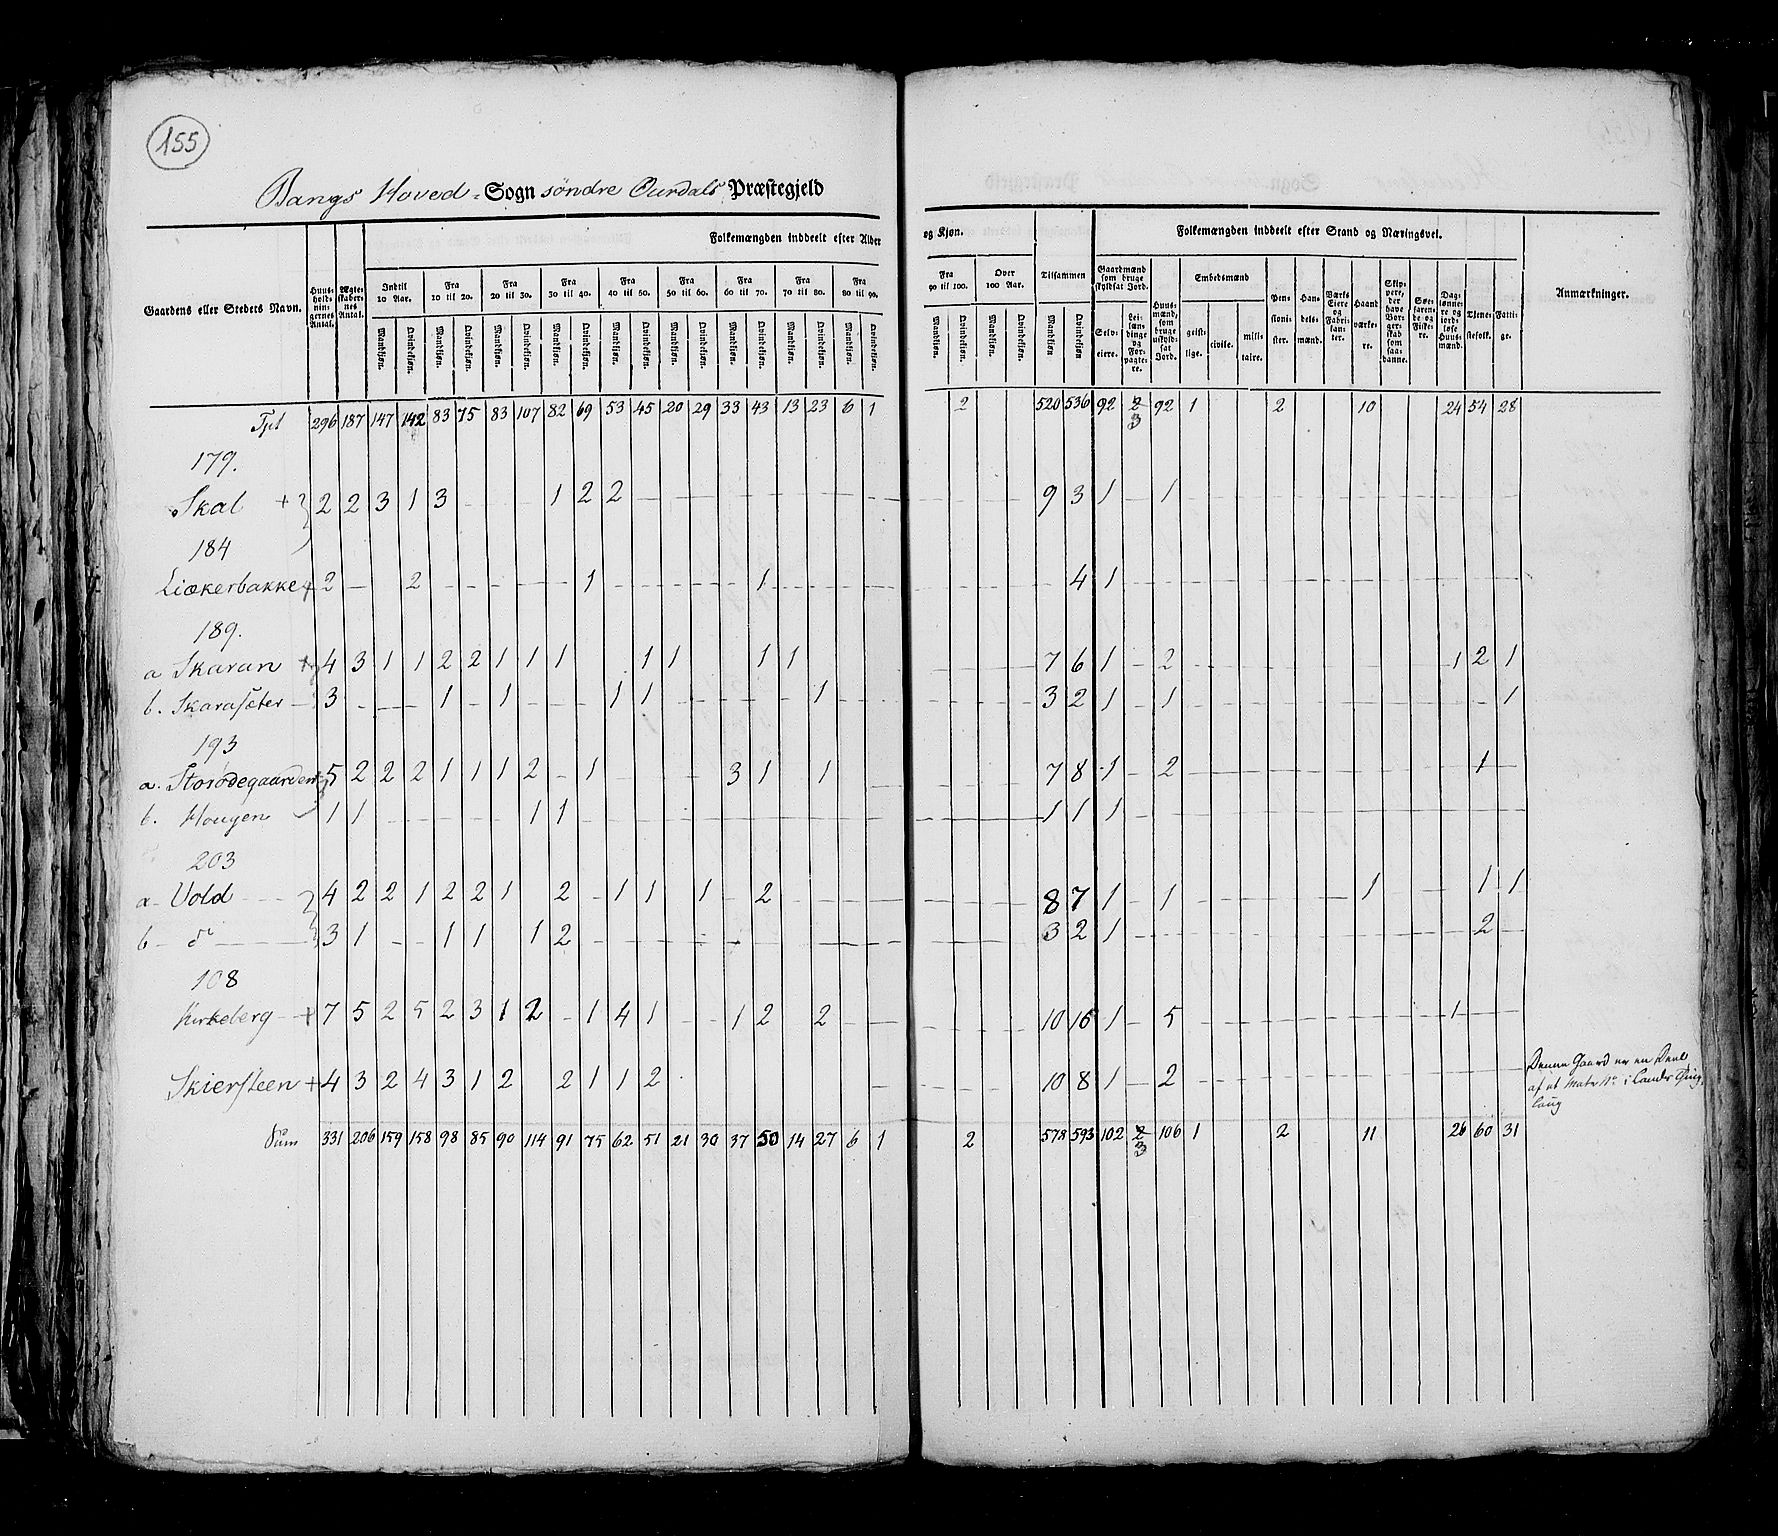 155
Bangs Hoved-Sogn søndre Ourdals Præstegjeld
Folkemængden inddeelt efter Alder og Kjøn. Tilsammen Folkemængden inddeelt efter Stand og Næringsvei.
Gaardens eller Stedets Navn. Huusholdningernes Antal. Ægteskabernes Antal. Indtil 10 Aar. Fra 10 til 20. Fra 20 til 30. Fra 30 til 40. Fra 40 til 50. Fra 50 til 60. Fra 60 til 70. Fra 70 til 80. Fra 80 til 90. Fra 90 til 100. Over 100 Aar. Gaardmænd som bruge skyldsat Jord. Huusmænd, som bruge uskyldsat Jord. Embedsmænd Pensionister. Handelsmænd. Værks Eiere og Fabrikanter. Haandværkere. Skippere, der have Borgerskab som saadanne. Søefarende og Fiskere. Daglønnere og jordløse Huusmænd. Tjenestefolk. Fattige. Anmærkninger.
Mandkjøn. Qvindekjøn. Mandkjøn. Qvindekjøn. Mandkjøn. Qvindekjøn. Mandkjøn. Qvindekjøn. Mandkjøn. Qvindekjøn. Mandkjøn. Qvindekjøn. Mandkjøn. Qvindekjøn. Mandkjøn. Qvindekjøn. Mandkjøn. Qvindekjøn. Mandkjøn. Qvindekjøn. Mandkjøn. Qvindekjøn. Mandkjøn Qvindekjøn Selveiere. Leilændinge og Forpagtere. geistlige. civile. militaire.
Tpt 296 187 147 142 83 75 83 107 82 69 53 45 20 29 33 43 13 23 6 1 2 520 536 92 3 92 1 2 10 24 54 28
179.
Skal + 2 2 3 1 3 - - - 1 2 2 9 3 1 - 1
184
Liækerbakke + 2 - 2 1 1 4 1
189.
a Skaran + 4 3 1 1 2 2 1 1 1 1 1 1 1 7 6 1 - 2 1 2 1
b. Skarasæter - 3 1 - 1 1 1 1 3 2 1 - 1 1
193
a. Storødegaarden 5 2 2 2 1 1 1 2 - 1 3 1 - 1 7 8 1 - 2 1
b. Hougen 1 1 1 1 1 1 1
203
a - Vold 4 2 2 1 2 2 1 2 - 1 1 - 1 - 2 8 7 1 - 1 1 1 1
b - do 3 1 - - 1 1 1 2 3 2 1 2
108
Kirkeberg 7 5 2 5 2 3 1 2 - 1 4 1 1 2 - 2 10 16 1 - 5 1
Skiersteen + 4 3 2 4 3 1 2 2 1 1 2 10 8 1 - 2
Denne Gaard er en Deel
af et Matr No i Lands Thing
laug
Sum 331 206 159 158 98 85 90 114 91 75 62 51 21 30 37 50 14 27 6 1 2 578 593 102 3 106 1 2 11 26 60 31